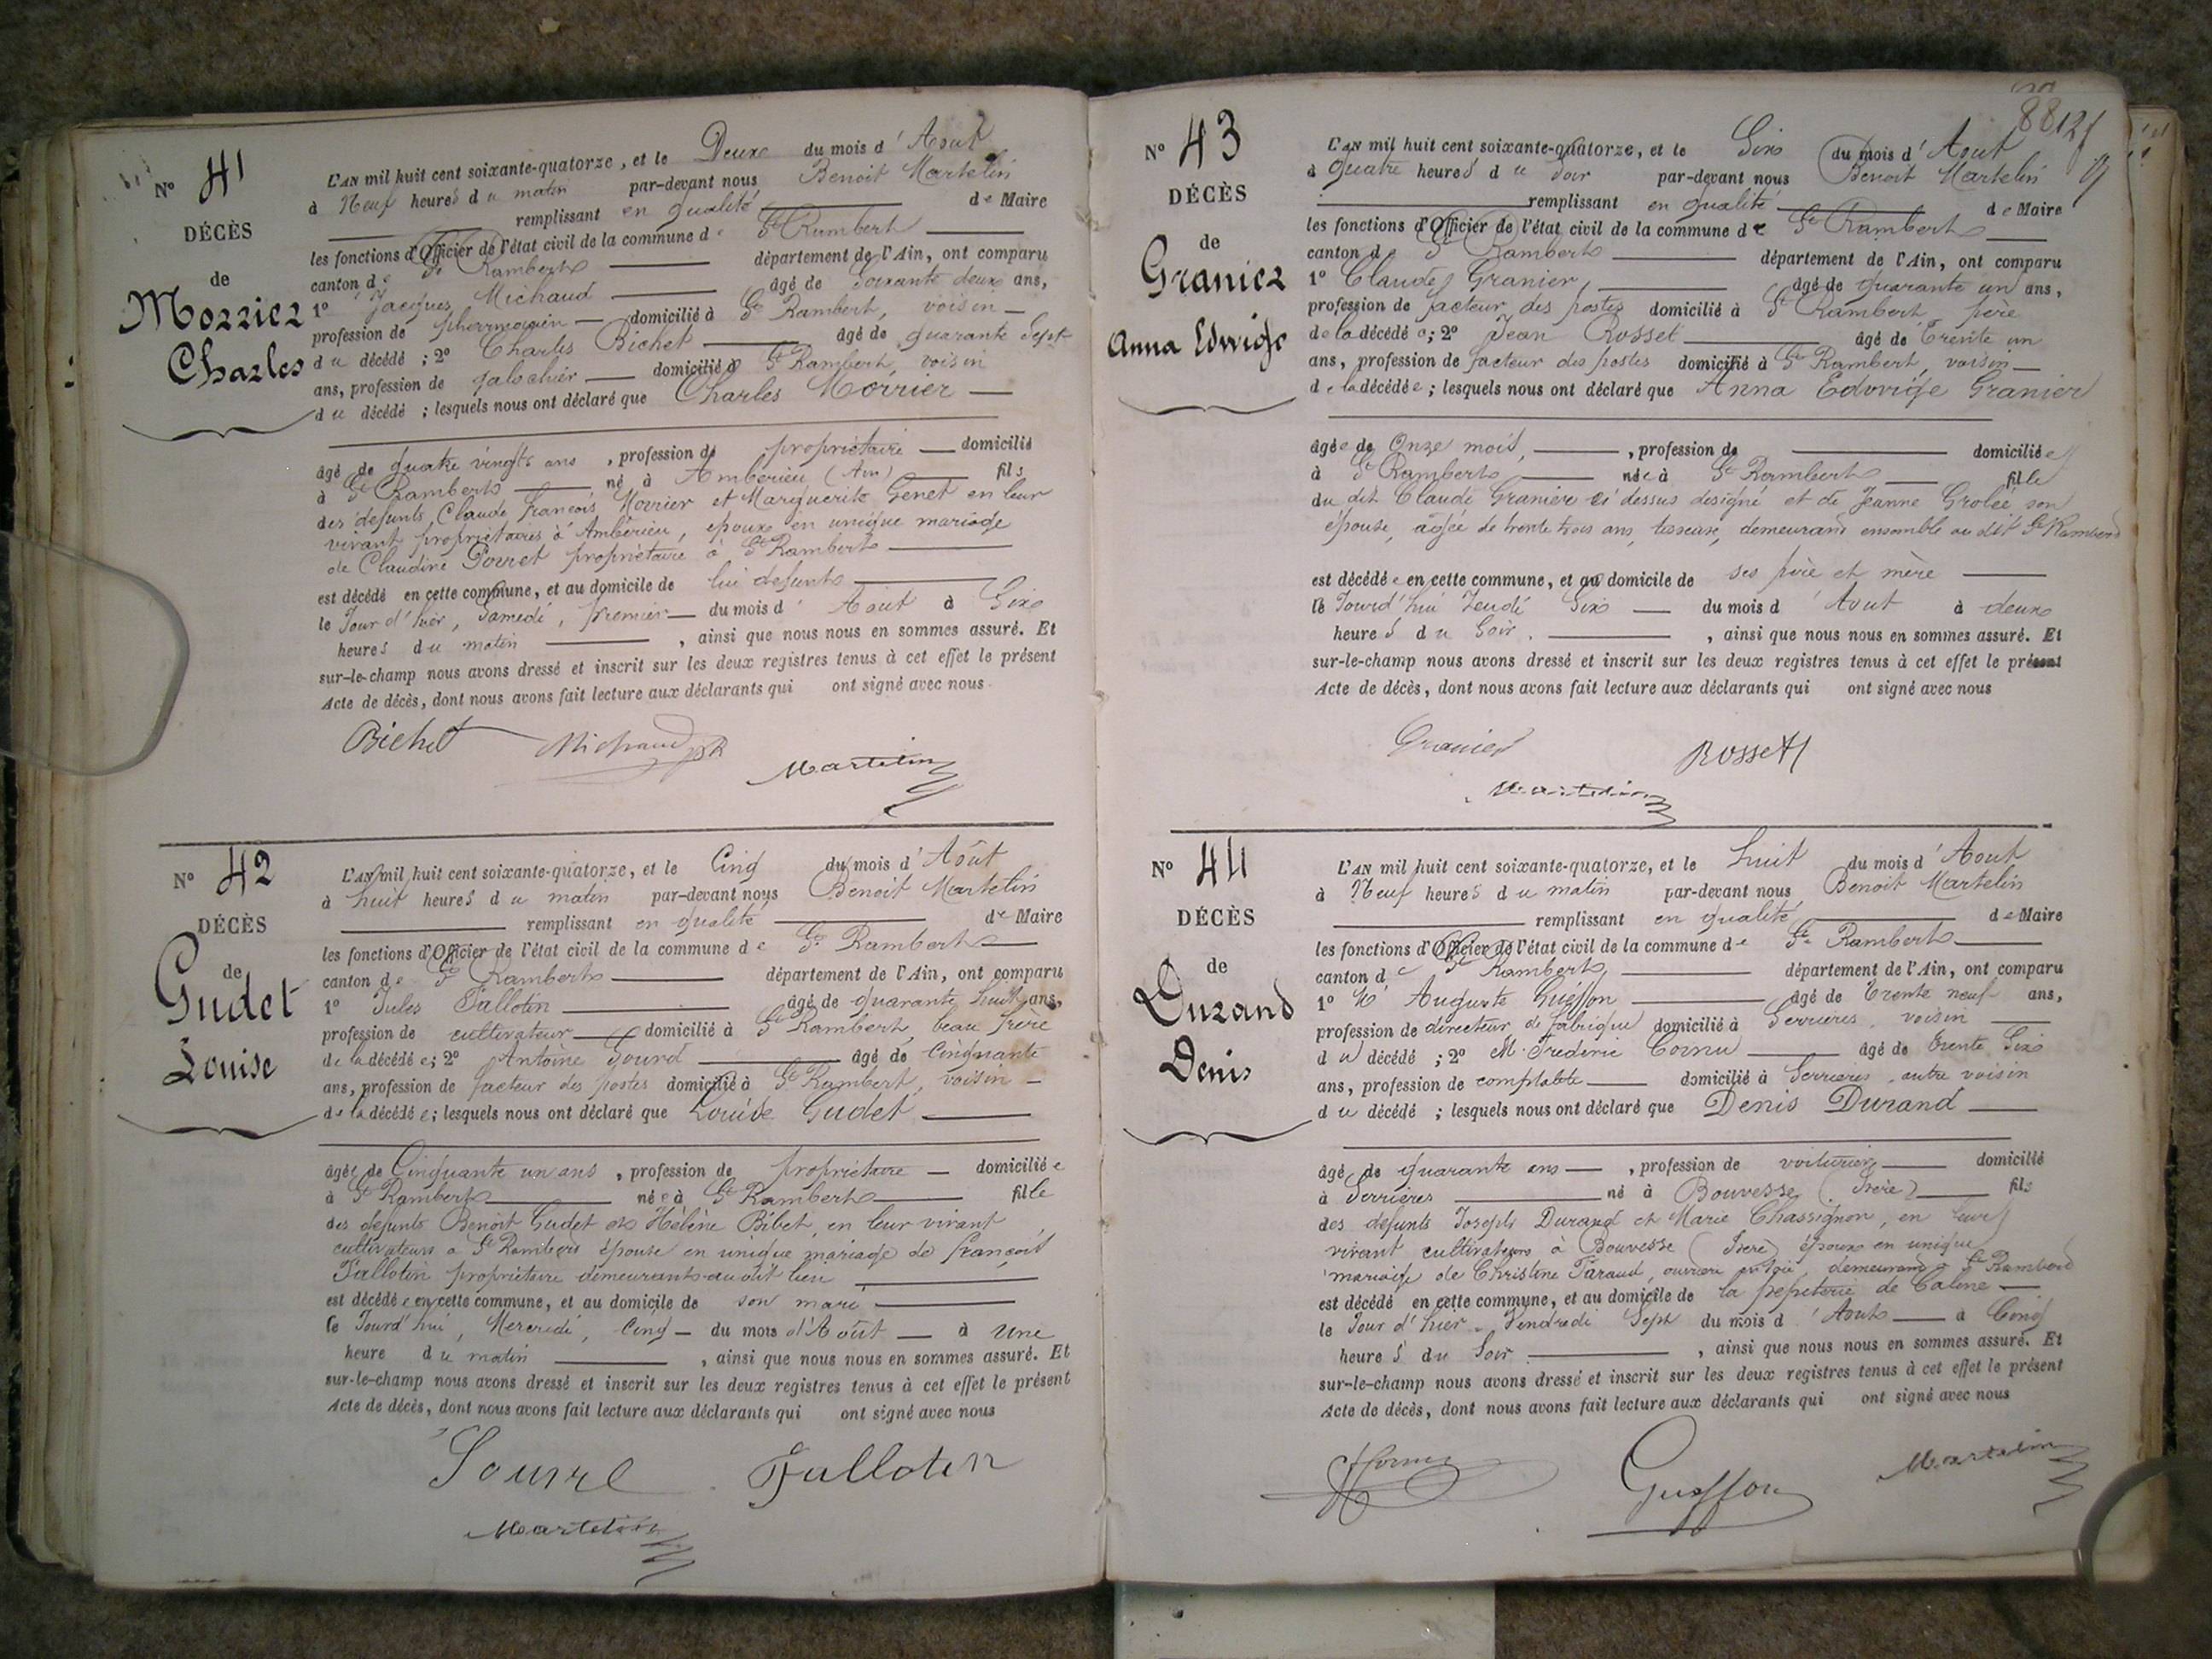 N° 41
DÉCÈS
de
Morrier
Charles
L'AN mil huit cent soixante-quatorze, et le Deux du mois d'Aout
à Neuf heures du matin par-devant nous Benoit Martelin
remplissant en qualité de Maire
les fonctions d'Officier de l'état civil de la commune de St Rambert
canton de St Rambert département de l'Ain, ont comparu
1° Jacques Michaud âgé de Soixante deux ans,
profession de domicilié à St Rambert, voisin
du décédé ; 2° Charles Bichet âgé de quarante Sept
ans, profession de galochier domicilié à St Rambert, voisin
du décédé ; lesquels nous ont déclaré que Charles Morrier
âgé de quatre vingts ans, profession de propriétaire domicilié
à St Rambert né à Ambérieu (Ain) fils
des défunts Claude François Morrier et Marguerite Genet en leur
vivant propriétaires à Ambérieu, époux en unique mariage
de Claudine Porret propriétaire à St Rambert
est décédé en cette commune, et au domicile de lui defunt
le Jour d'hier, Samedi, premier du mois d'Aout à Six
heures du matin, ainsi que nous nous en sommes assuré. Et
sur-le-champ nous avons dressé et inscrit sur les deux registres tenus à cet effet le présent
Acte de décès, dont nous avons fait lecture aux déclarants qui ont signé avec nous.
Bichet Michaud
Martelin
N° 42
DÉCÈS
de
Gudet
Louise
L'AN mil huit cent soixante-quatorze, et le Cinq du mois d'Août
à huit heures du matin par-devant nous Benoit Martelin
remplissant en qualité de Maire
les fonctions d'Officier de l'état civil de la commune de St Rambert
canton de St Rambert département de l'Ain, ont comparu
1° Jules Falloten âgé de quarante huit ans,
profession de cultivateur domicilié à St Rambert, beau frère
de la décédée; 2° Antoine Sourd âgé de Cinquante
ans, profession de facteur des postes domicilié à St Rambert, voisin
de la décédée; lesquels nous ont déclaré que Louise Gudet
âgée de Cinquante un ans, profession de propriétaire domiciliée
à St Rambert née à St Rambert fille
des defunts Benoit Gudet et Hélène Bibet, en leur vivant
cultivateurs a St Rambert épouse en unique mariage de François
Falloten propriétaire demeurants audit lieu
est décédée en cette commune, et au domicile de son mari
le Jourd'hui, Mercredi, Cinq du mois d'Août à une
heure du matin, ainsi que nous nous en sommes assuré. Et
sur-le-champ nous avons dressé et inscrit sur les deux registres tenus à cet effet le présent
Acte de décès, dont nous avons fait lecture aux déclarants qui ont signé avec nous
Falloten
Martelin
88
N° 43
DÉCÈS
de
Granier
Anna Edwige
L'AN mil huit cent soixante-quatorze, et le Six du mois d'Aout
à Quatre heures du soir par-devant nous Benoit Martelin
remplissant en qualité de Maire
les fonctions d'Officier de l'état civil de la commune de St Rambert
canton d St Rambert département de l'Ain, ont comparu
1° Claude Granier, âgé de quarante un ans,
profession de facteur des postes domicilié à St Rambert père
de la décédée; 2° Jean Rosset âgé de trente un
ans, profession de facteur des postes domicilié à St Rambert, voisin
de la décédée; lesquels nous ont déclaré que Anna Edwige Granier
âgée de Onze mois, profession de domiciliée
à St Rambert née à St Rambert fille
du dit Claude Granier ci dessus designé et de Jeanne Grolée son
épouse, agée de trente trois ans, tisseuse, demeurand ensemble au dit St Rambert
est décédée en cette commune, et au domicile de ses père et mère
le Jourd'hui Jeudi Six du mois d'Aout à deux
heures du Soir, ainsi que nous nous en sommes assuré. Et
sur-le-champ nous avons dressé et inscrit sur les deux registres tenus à cet effet le présent
Acte de décès, dont nous avons fait lecture aux déclarants qui ont signé avec nous
Granier Rosset
Martelin
N° 44
DÉCÈS
de
Durand
Denis
L'AN mil huit cent soixante-quatorze, et le huit du mois d'Aout
à Neuf heures du matin par-devant nous Benoit Martelin
remplissant en qualité de Maire
les fonctions d'Officier de l'état civil de la commune de St Rambert
canton de St Rambert département de l'Ain, ont comparu
1° M Auguste Guiffon âgé de trente neuf ans,
profession de directeur de fabrique domicilié à Serrières, voisin
du décédé ; 2° M. Frederic Cornu âgé de trente Six
ans, profession de comptable domicilié à Serrieres, autre voisin
du décédé ; lesquels nous ont déclaré que Denis Durand
âgé de quarante ans, profession de voiturier domicilié
à Serrières né à Bouvesse (Isère) fils
des defunts Joseph Durand et Marie Chassignon, en leur
vivant cultivateurs à Bouvesse (Isère) époux en unique
mariage de Christine Faraud, demeurand a St Rambert
est décédé en cette commune, et au domicile de la papeterie de
le Jour d'hier, Vendredi Sept du mois d'Aout à Cinq
heures du Soir, ainsi que nous nous en sommes assuré. Et
sur-le-champ nous avons dressé et inscrit sur les deux registres tenus à cet effet le présent
Acte de décès, dont nous avons fait lecture aux déclarants qui ont signé avec nous
Guiffon Martelin